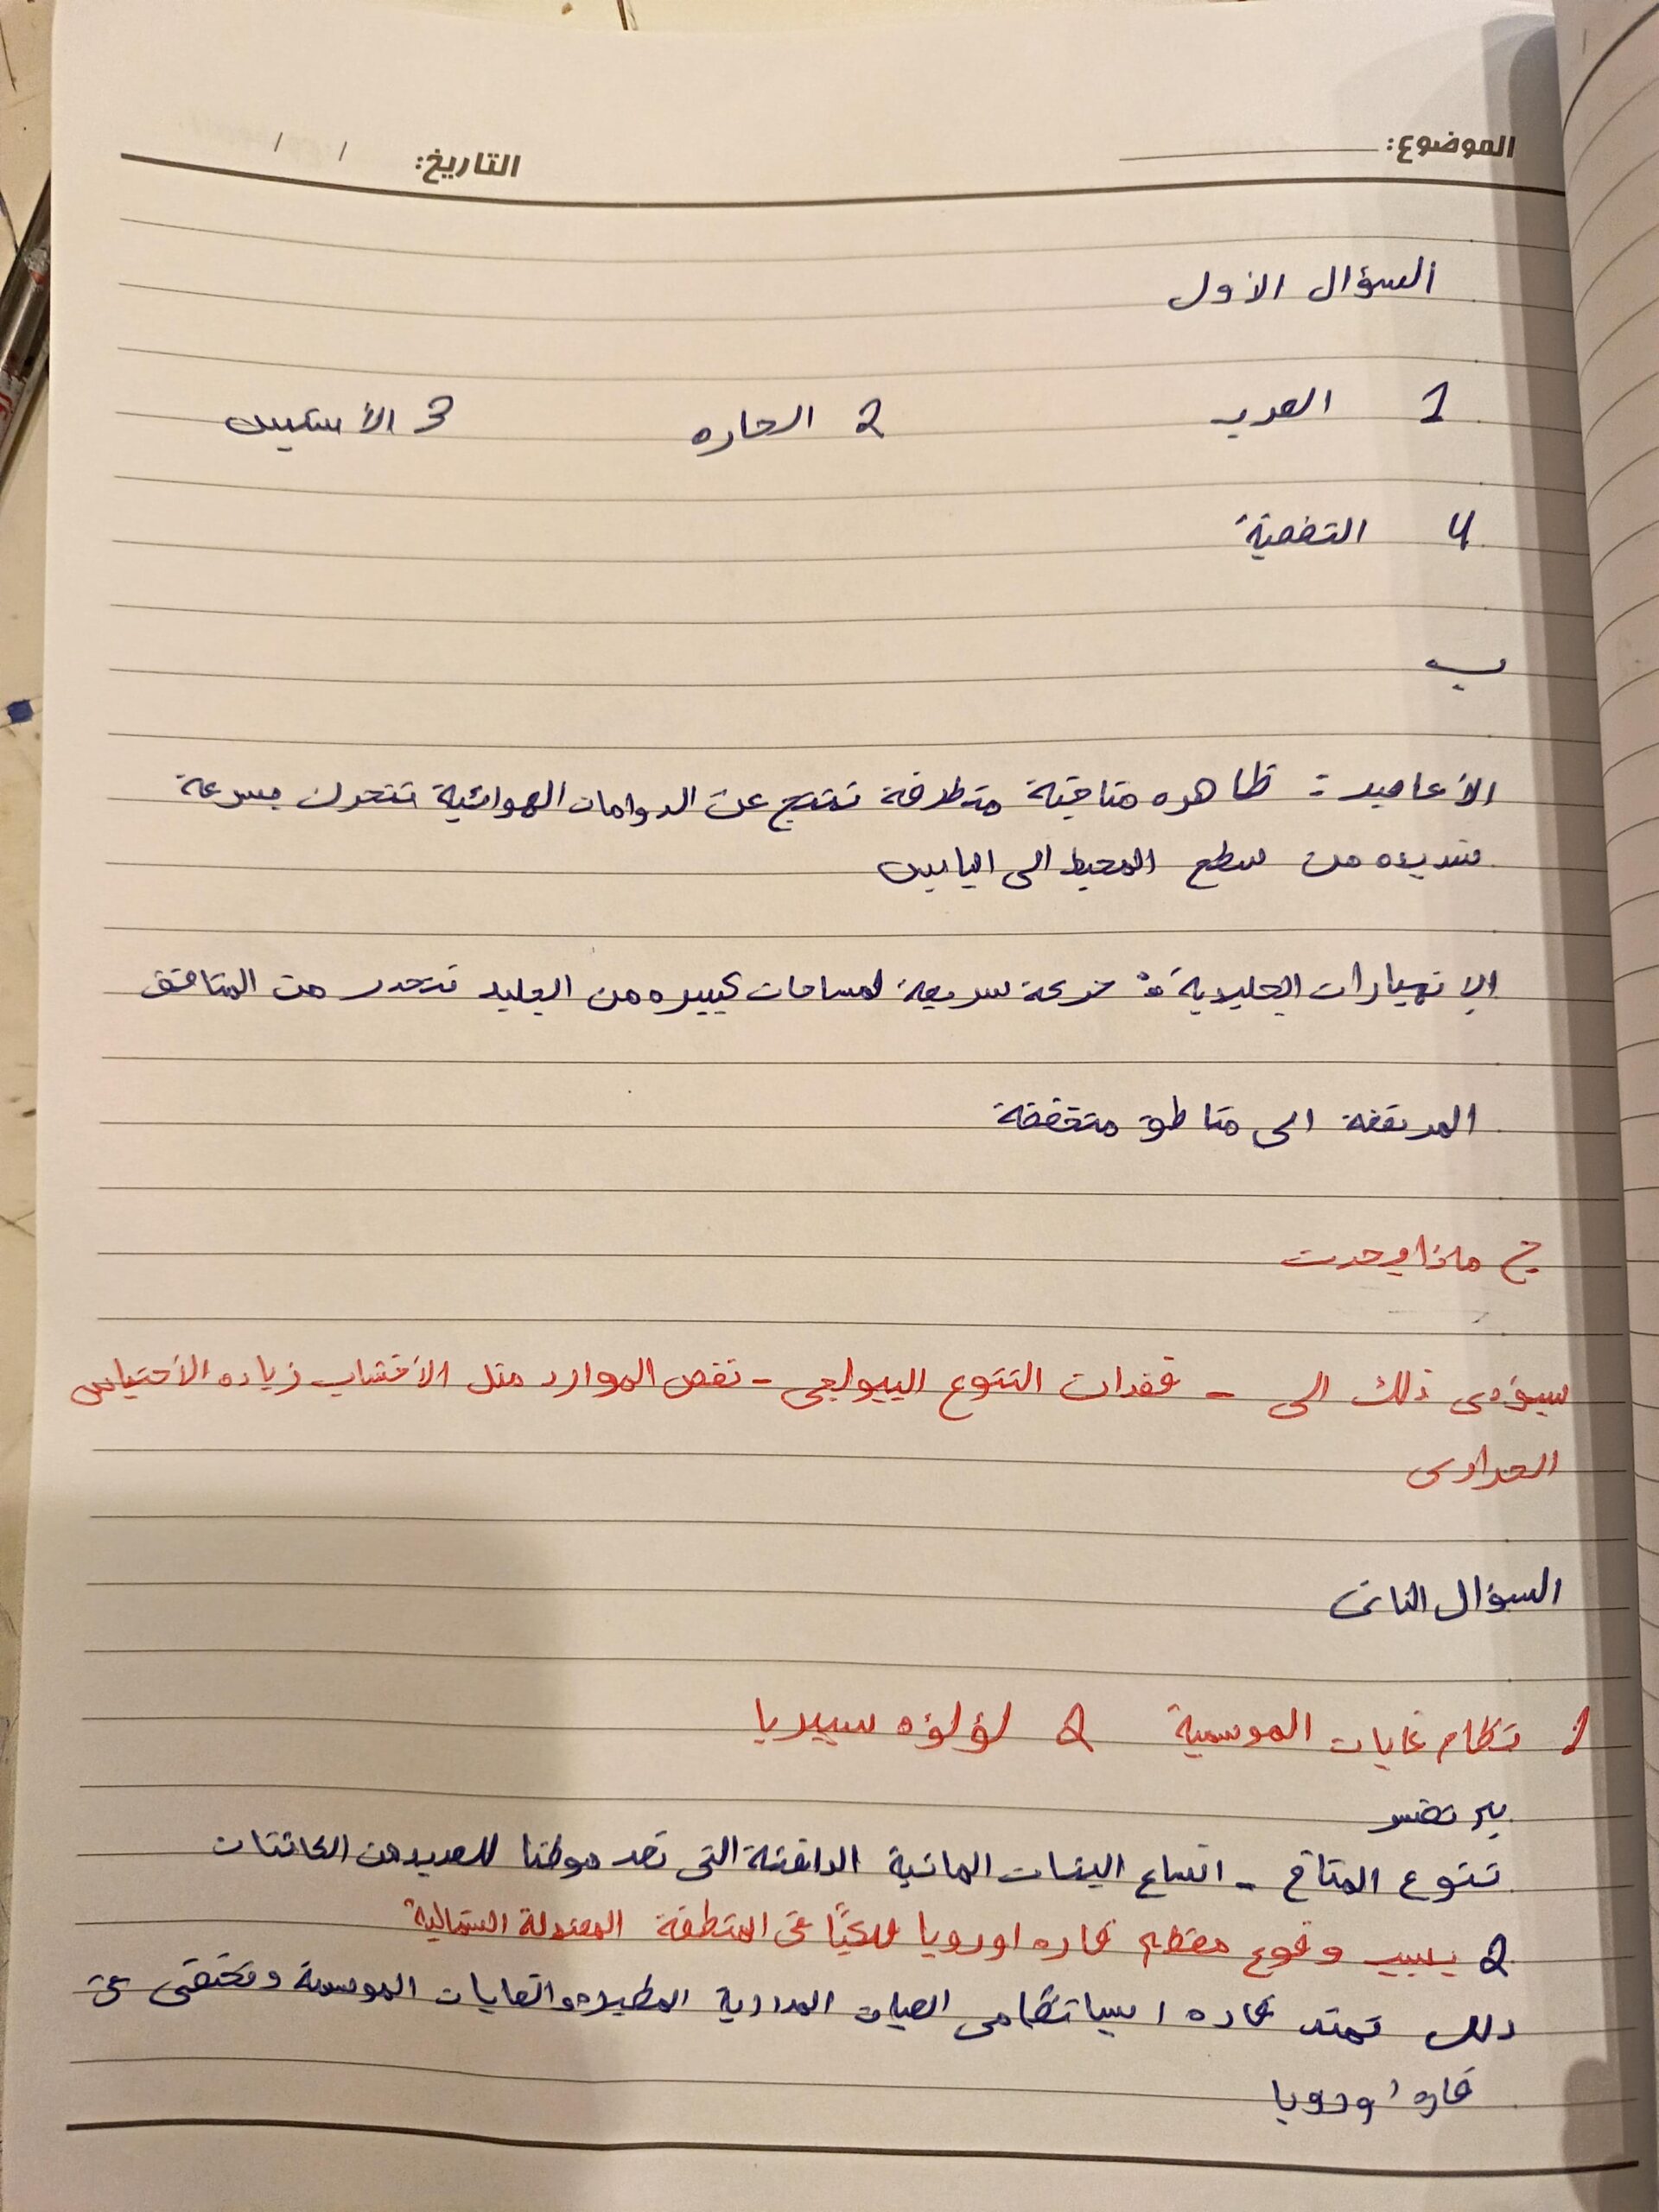 الموضوع: التاريخ: / /
السؤال الأول
1 العرب 2 الحاره 3 الأستبس
4 النفضية
ب
الأعاصير: ظاهره مناخية متطرفة تنتج عن الدوامات الهوائية تتحرك بسرعة
شديده من سطح المحيط الى اليابس
الإنهيارات الجليدية: حركة سريعة لمساحات كبيره من الجليد تنحدر من المناطق
المرتفعة الى مناطق منخفضة
ج ماذا يحدث
سيؤدى ذلك الى - فقدان التنوع البيولجى - نقص الموارد مثل الأخشاب زياده الأحتباس
الحرارى
السؤال الثانى
1 نظام غابات الموسمية 2 لؤلؤه سيبريا
ب
تنوع المناخ - اتساع البيئات المائية الدافئة التى تعد موطنا للعديد من الكائنات
2 بسبب وقوع معظم قاره اوروبا فلكيًا فى المنطقة المعتدلة الشمالية
ذلك تمتد قاره اسيا نظامى الغابات المدارية المطيره والغابات الموسمية وتختفى فى
قاره اوروبا